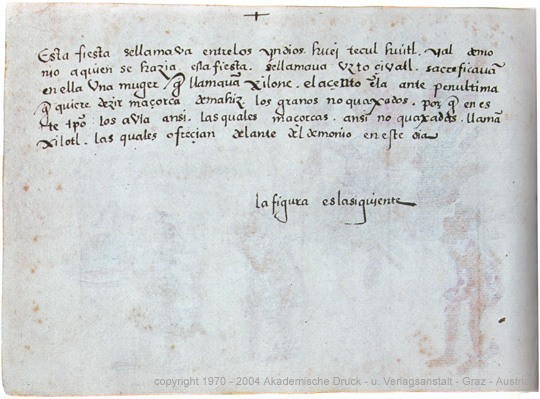 Esta fiesta sellamava entrelos yndios. huei tecul huitl. y al demo
nio aquien se hazia esta fiesta. sellamava vzto civatl. sacrificavā
en ella una muger q̄ llamavā xilonē. el açēto ē la ante penultima
q̄ quiere dezir maçorca demahiz los granos no quaxados. por q̄ en es
te tp̄o los avia ansi. las quales maçorcas. ansi no quaxadas. llamā
xilotl. las quales ofrecian delante del demonio en este dia
la figura es lasiguiente
copyright 1970 - 2004 Akademische Druck - u. Verlagsanstalt - Graz - Austria